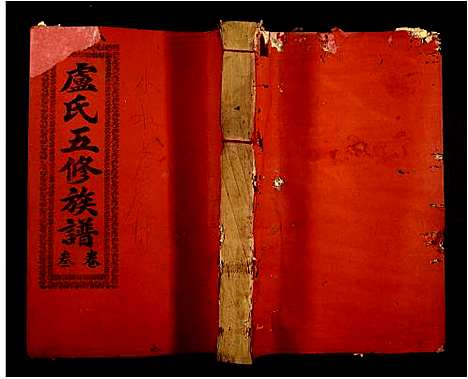 盧氏五修族譜
卷叁